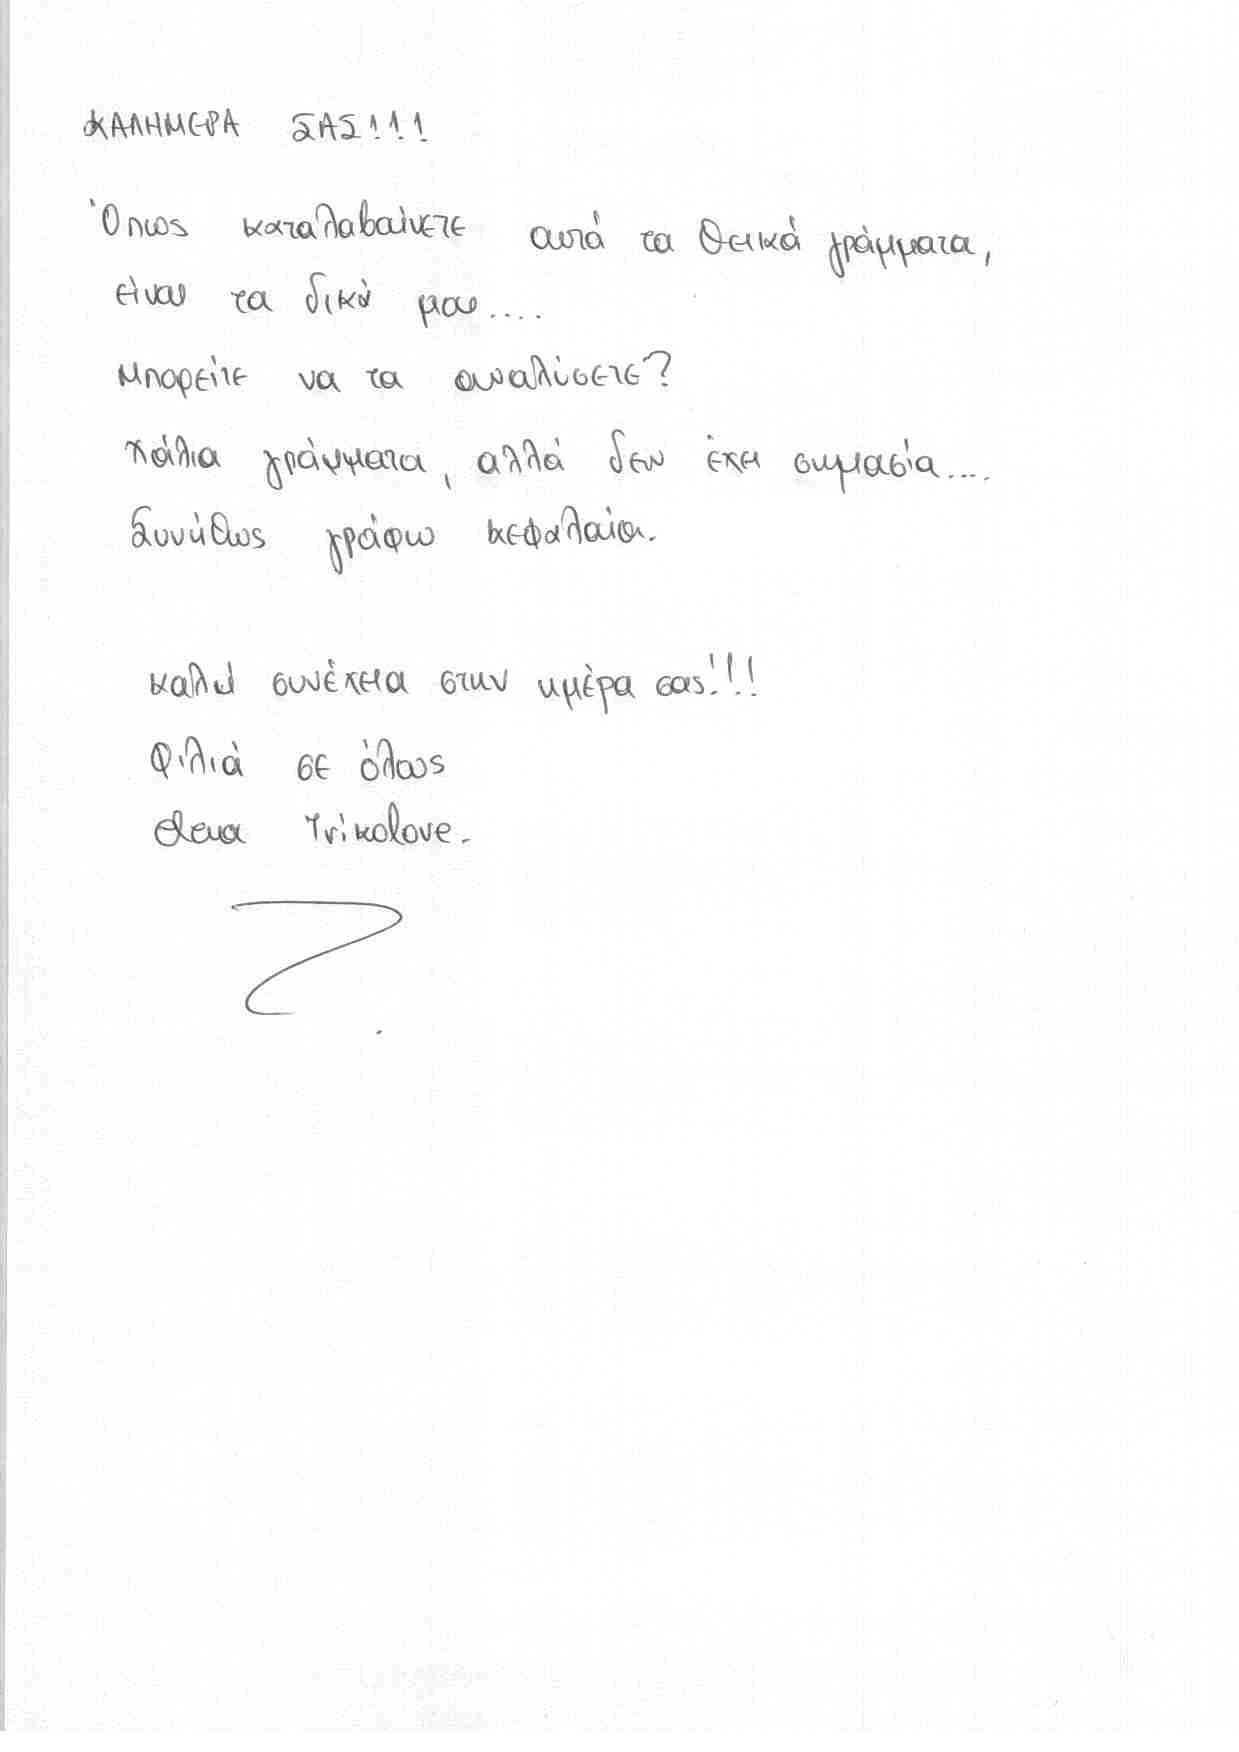 ΚΑΛΗΜΕΡΑ ΣΑΣ!!!
Όπως καταλαβαίνετε αυτά τα θεικά γράμματα,
είναι τα δικά μου....
Μπορείτε να τα αναλύσετε?
Χάλια γράμματα, αλλά δεν έχει σημασία....
Συνήθως γράφω κεφαλαία.
Καλή συνέχεια στην ημέρα σας!!!
Φιλιά σε όλους
Elena Trikolove.